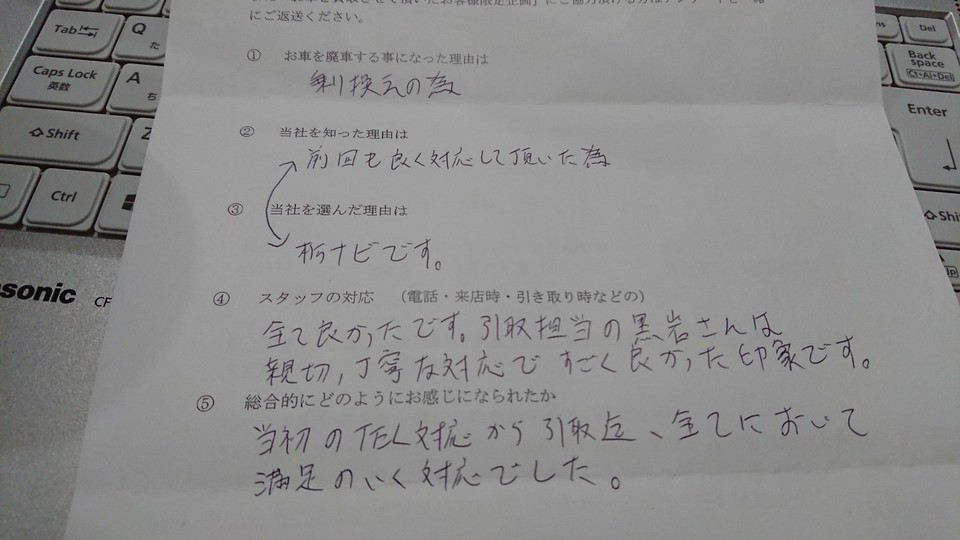 にご返送ください。
① お車を廃車する事になった理由は
乗り換えの為
② 当社を知った理由は
前回も良く対応して頂いた為
③ 当社を選んだ理由は
栃ナビです。
④ スタッフの対応 （電話・来店時・引き取り時などの）
全て良かったです。引取担当の黒岩さんは
親切,丁寧な対応で すごく良かった印象です。
⑤ 総合的にどのようにお感じになられたか
当初のTEL対応から引取迄、全てにおいて
満足のいく対応でした。
Tab
Q
た
Caps Lock
英数
A
ち
Shift
Z
Ctrl
sonic CF
Del
Back
space
Ct+Al+Del
Enter
Shi